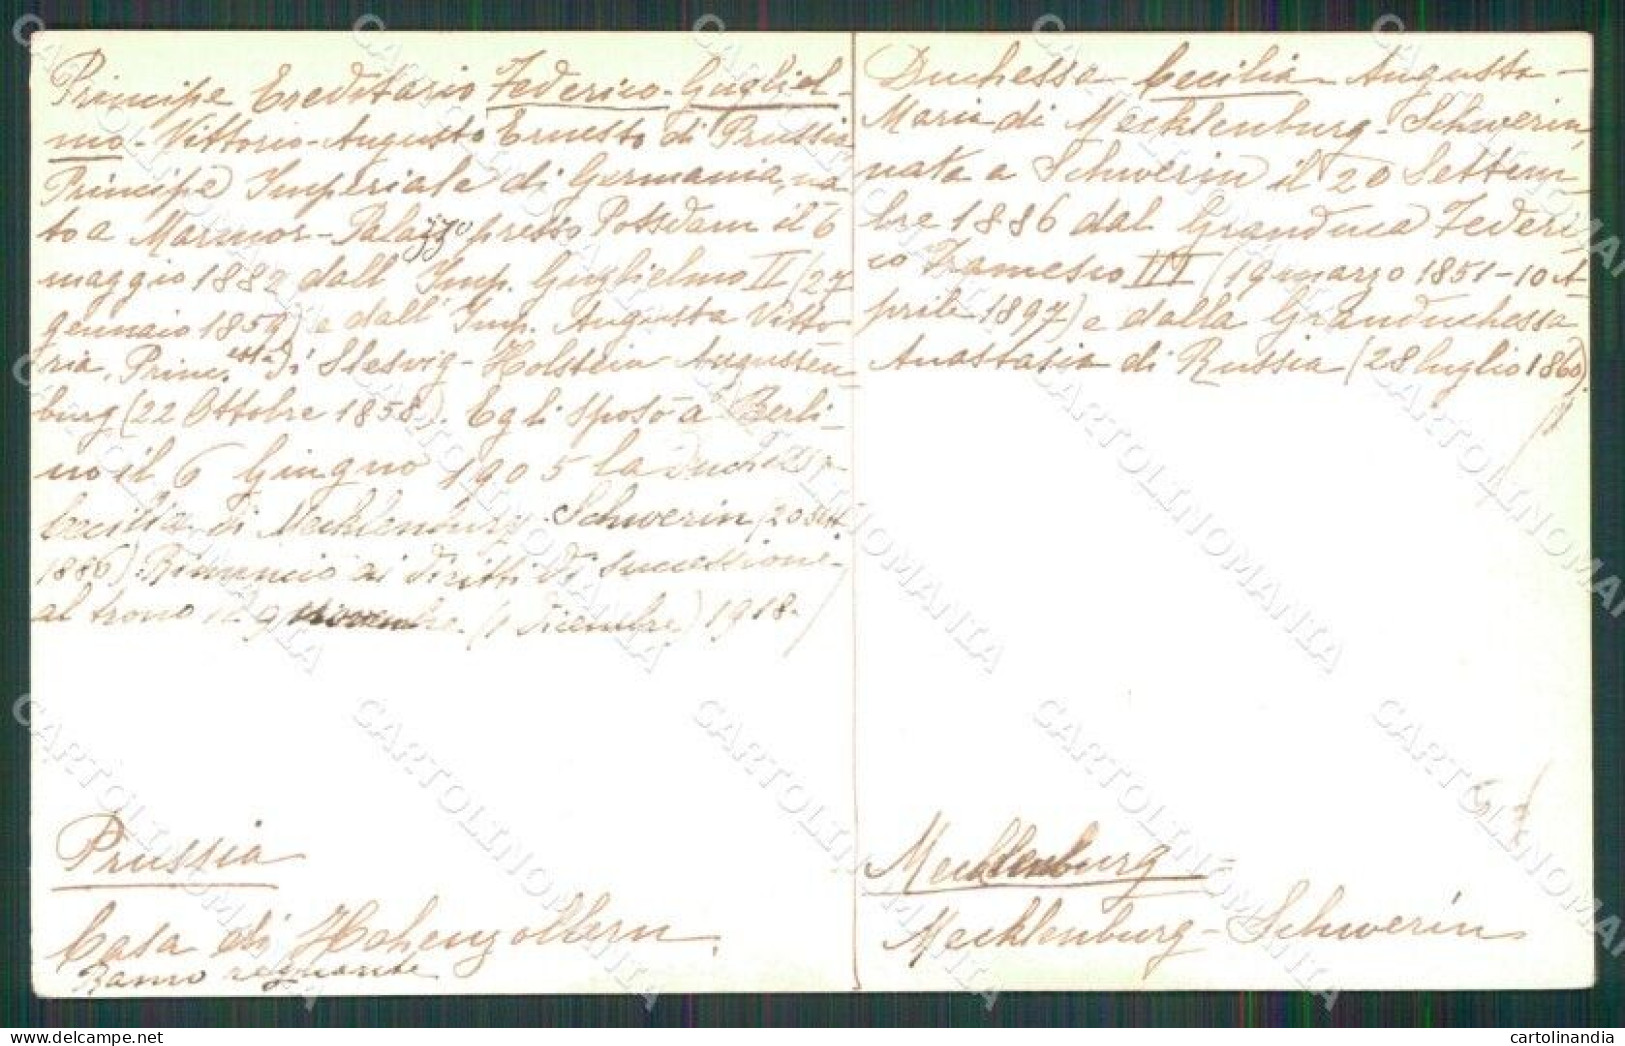 Principe Ereditario Federico-Gugliel-
mo-Vittorio-Augusto Ernesto di Prussia,
Principe Imperiale di Germania, na-
to a Marmor-Palazzo presso Potsdam il 6
maggio 1882 dall' Imp. Guglielmo II (27
gennaio 1859) e dall' Imp. Augusta Vitto-
ria, Princ.essa di Slesvig-Holstein Augusten-
burg (22 Ottobre 1858). Egli sposò a Berli-
no il 6 Giugno 1905 la Duchessa
Cecilia di Mecklenburg-Schwerin (20 Sett.
1886). Rinunciò ai diritti di successione
al trono il 9 novembre (1 dicembre) 1918.
Prussia
Casa di Hohenzollern.
Ramo regnante
Duchessa Cecilia Augusta-
Maria di Mecklenburg-Schwerin,
nata a Schwerin il 20 Settem-
bre 1886 dal Granduca Federi-
co Francesco III (19 marzo 1851-10 A-
prile 1897) e dalla Granduchessa
Anastasia di Russia (28 luglio 1860).
Mecklenburg-
Mecklenburg-Schwerin
CARTOLINOMANIA
cartolinandia